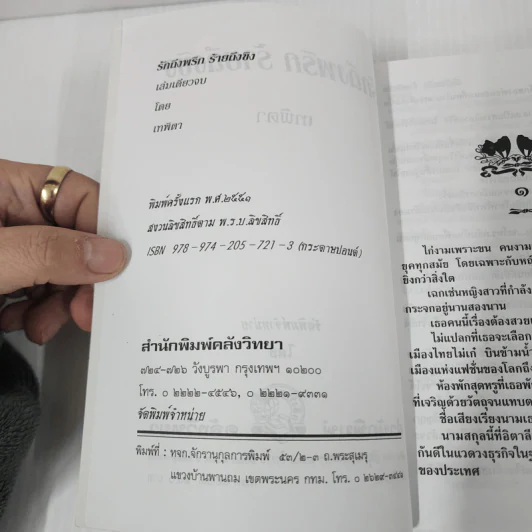 รักถึงพริก ร้ายถึงขิง
เล่มเดียวจบ
โดย
เทพิตา
พิมพ์ครั้งแรก พ.ศ.๒๕๕๑
สงวนลิขสิทธิ์ตาม พ.ร.บ.ลิขสิทธิ์
ISBN 978-974-205-721-3 (กระดาษปอนด์)
สำนักพิมพ์คลังวิทยา
๗๒๔-๗๒๖ วังบูรพา กรุงเทพฯ ๑๐๒๐๐
โทร. ๐ ๒๒๒๒-๔๕๔๖, ๐ ๒๒๒๑-๙๓๓๑
จัดพิมพ์จำหน่าย
พิมพ์ที่ : หจก.จักรานุกูลการพิมพ์ ๕๓/๒-๓ ถ.พระสุเมรุ
แขวงบ้านพานถม เขตพระนคร กทม. โทร. ๐ ๒๖๒๙-
๑
ไก่งามเพราะขน คนงาม
ยุคทุกสมัย โดยเฉพาะกับหญ
ยิ่งกว่าสิ่งใด
เฉกเช่นหญิงสาวที่กำลัง
กระจกอยู่นานสองนาน
เธอคนนี้เรื่องต้องสวย
ไม่แปลกที่เธอจะเลือก
เมืองไทยไม่เก๋ บินข้ามน้ำ
เมืองแห่งแฟชั่นของโลกถึง
ห้องพักสุดหรูที่เธอพัก
ที่เจริญด้วยวัตถุจนแทบ
ชื่อเสียงเรียงนาม
นามสกุลนี้ที่อิตาลี
กันดีในแวดวงธุรกิจใน
ของประเทศ